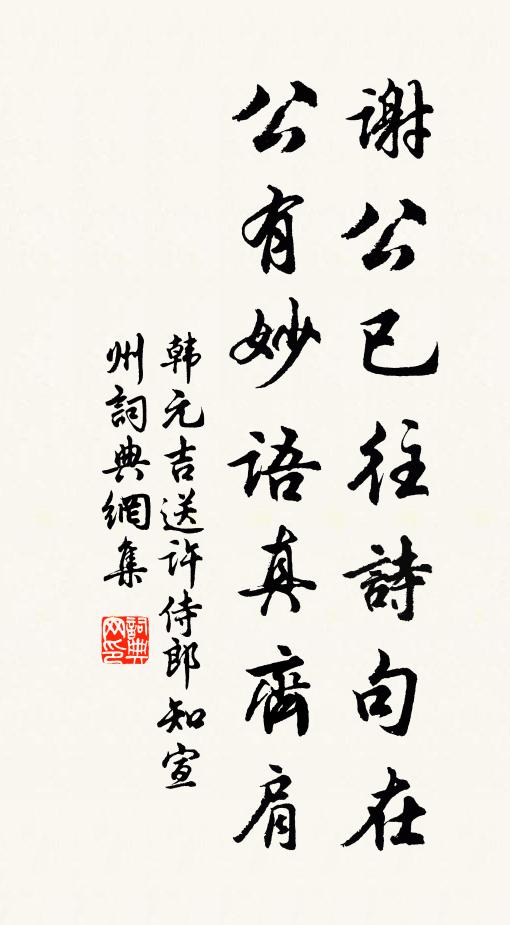 谢公已往詩句在
公有妙语真齊肩
韩元吉送许侍郎知宣
州詞典網集
詞典网印